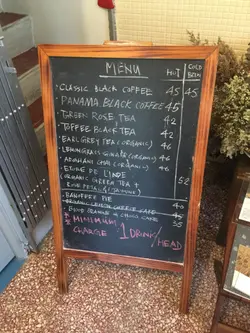 MENU HOT COLD BREW
CLASSIC BLACK COFFEE 45 45
PANAMA BLACK COFFEE 45
ROSE TEA 42
TOFFEE BLACK TEA 42
EARL GREY TEA (ORGANIC) 46
LEMONGRASS GINGER (ORGANIC) 46
CHAI (ORGANIC) 46
ETOILE DE L'INDE
(ORGANIC GREEN TEA +
ROSE PETALS + JASMINE) 52
BANOFFEE PIE 40
CHEESE CAKE
ORANGE & CHOCO CAKE 35
* MINIMUM
CHARGE 1 DRINK/
HEAD